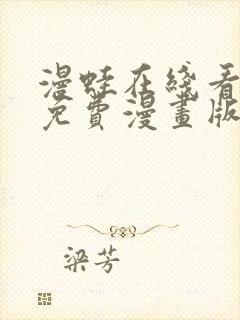 漫蛙在綫看
免費漫畫版
梁芳